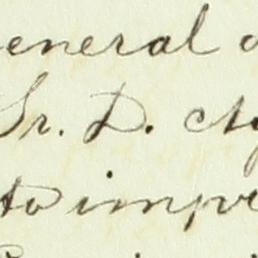 eneral
Sr. D.
to impe